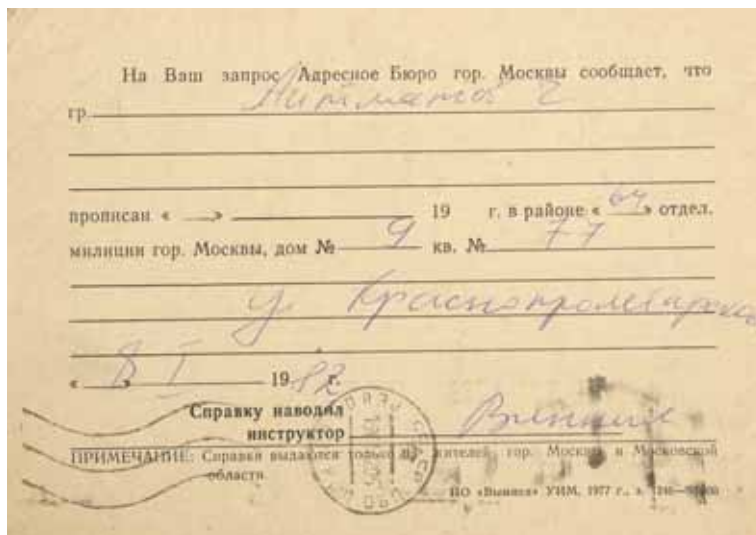 На Ваш запрос Адресное Бюро гор. Москвы сообщает, что
гр. Айтматов Ч
прописан « » 19 г. в районе « 64 » отдел.
милиции гор. Москвы, дом № 9 кв. № 77
у. Краснопролетарская
« 8 » I 1982 г.
Справку наводил
инструктор
ПРИМЕЧАНИЕ: Справки выдаются только на жителей гор. Москвы и Московской
области.
ПО «Вымпел» УИМ, 1977 г., з.